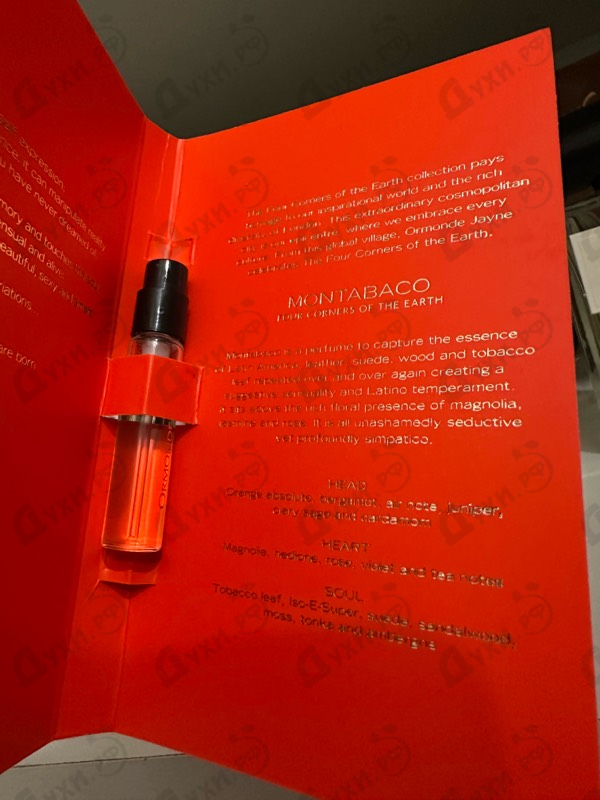 expression,
it can manipulate reality
you have never dreamed of
memory and touches
sensual and alive.
beautiful, sexy and
are born
The Four Corners of the Earth collection pays
homage to our inspirational world and the rich
of London. This extraordinary cosmopolitan
where we embrace every
culture. From this global village, Ormonde Jayne
celebrates The Four Corners of the Earth.
MONTABACO
FOUR CORNERS OF THE EARTH
Montabaco is a perfume to capture the essence
of Latin America, leather, suede, wood and tobacco
over and over again creating a
sensuality and Latino temperament.
above the rich floral presence of magnolia,
jasmine and rose. It is all unashamedly seductive
yet profoundly simpatico.
HEAD
Orange absolute, bergamot, air note, juniper,
clary sage and cardamom
HEART
Magnolia, hedione, rose, violet and tea notes
SOUL
Tobacco leaf, Iso-E-Super, suede, sandalwood,
moss, tonka and ambergris
ДУХИ.РФ